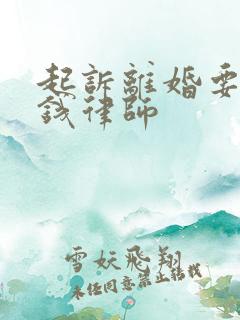 起訴離婚要
錢律師
雪妖飛翔
未经同意禁止转载